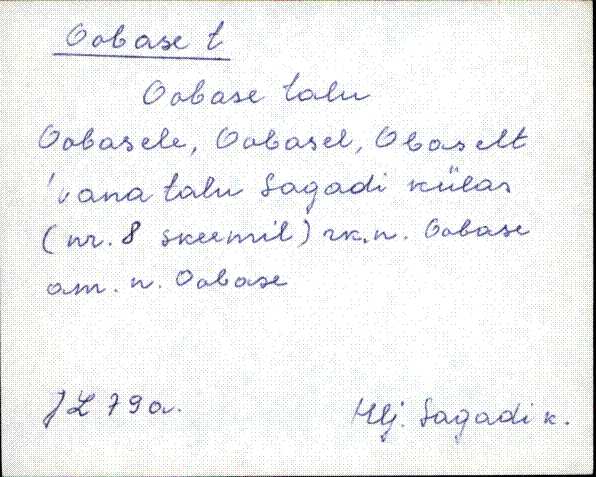 Oobase t
Oobase talu
Oobasele, Oobasel, Obaselt
'vana talu Sagadi külas
(nr. 8 skeemil) rk.n. Oobase
am. n. Oobase
JL 79a.
Hlj. Sagadi k.